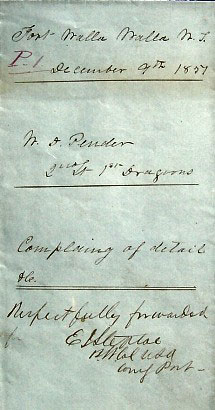 Fort Walla Walla W. T.
P. 1
December 9th 1857
W. D. Pender
2nd Lt 1st Dragoons
Complains of detail
&c.
Respectfully forwarded
E J Steptoe
Bt Col USA
Comg Post